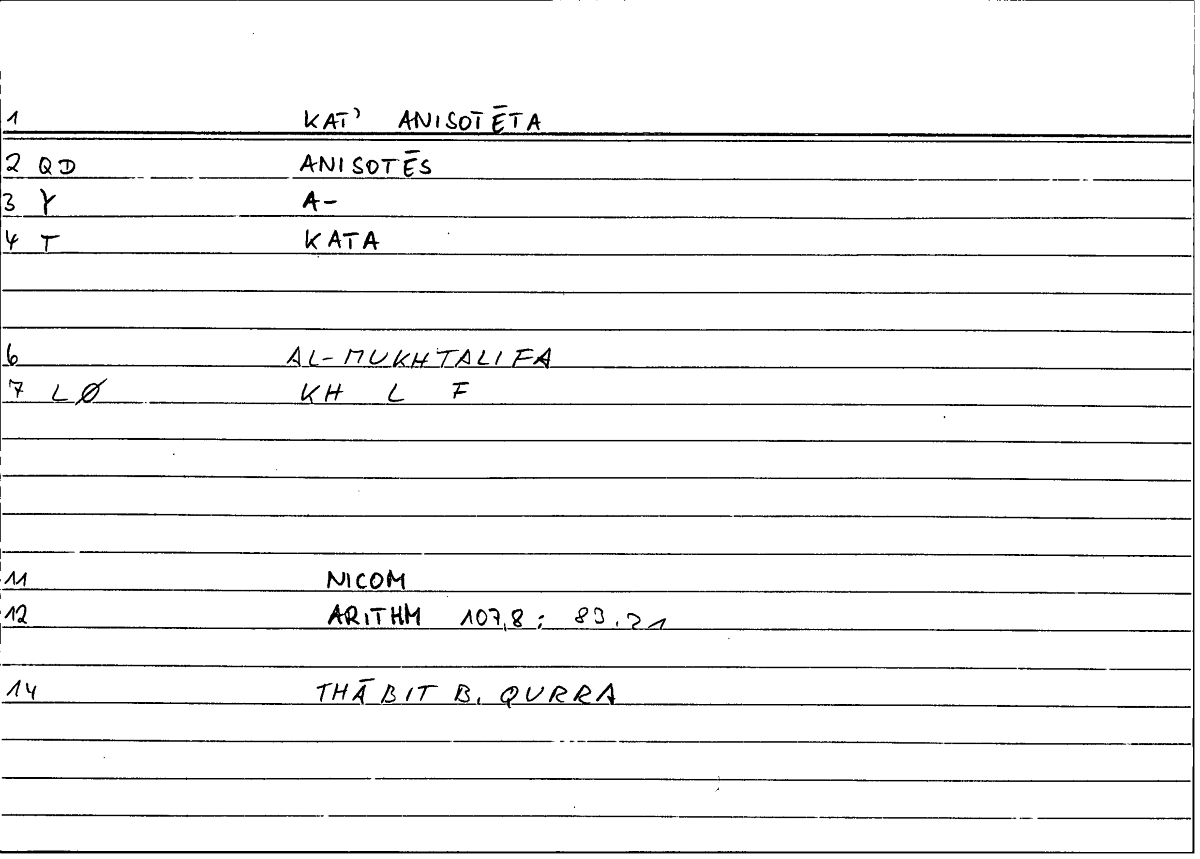 1 KAT' ANISOTĒTA
2 QD ANISOTĒS
3 Y A-
4 T KATA
6 AL-MUKHTALIFA
7 LØ KH L F
11 NICOM
12 ARITHM 107,8 ; 83.21
14 THĀBIT B. QURRA